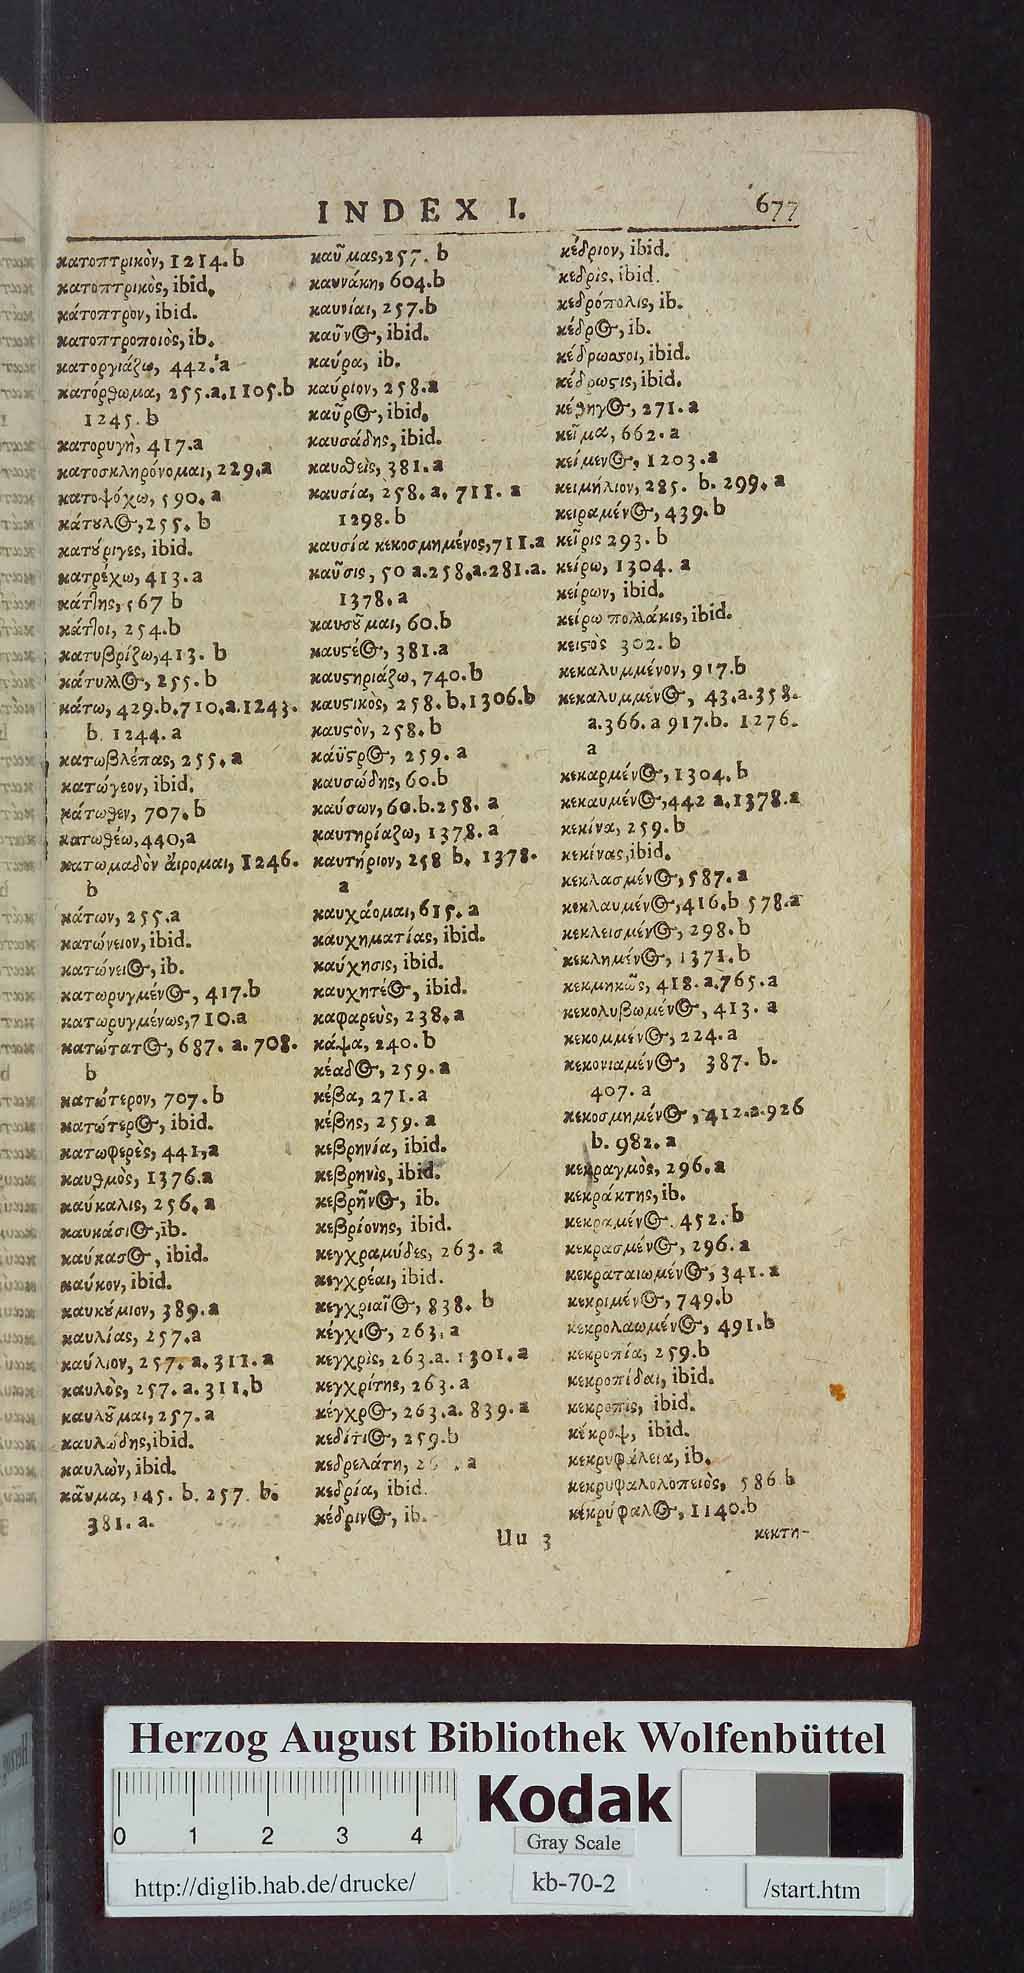 INDEX I. 677
κατοπτρικὸν, 1214. b
κατοπτρικὸς, ibid.
κάτοπτρον, ibid.
κατοπτροποιὸς, ib.
κατοργιάζω, 442. a
κατόρθωμα, 255. a. 1105. b
1245. b
κατορυγὴ, 417. a
κατοσκληρόνομαι, 229. a
κατοψόχω, 590. a
κάτȣλος, 255. b
κατȣ́ριγες, ibid.
κατρέχω, 413. a
κάτ]ης, 567 b
κάτ]οι, 254. b
κατυβρίζω, 413. b
κάτυλλος, 255. b
κάτω, 429. b. 710. a. 1243.
b. 1244. a
κατωβλέπας, 255. a
κατώγεον, ibid.
κάτωθεν, 707. b
κατωθέω, 440, a
κατωμαδὸν ἄιρομαι, 1246.
b
κάτων, 255. a
κατώνειον, ibid.
κατώνειος, ib.
κατωρυγμένος, 417. b
κατωρυγμένως, 710. a
κατώτατος, 687. a. 708.
b
κατώτερον, 707. b
κατώτερος, ibid.
κατωφερὲς, 441, a
καυθμὸς, 1376. a
καύκαλις, 256. a
καυκάσιος, ib.
καύκασος, ibid.
καύκον, ibid.
καυκȣ́μιον, 389. a
καυλίας, 257. a
καύλιον, 257. a. 311. a
καυλὸς, 257. a. 311. b
καυλȣ͂μαι, 257. a
καυλώδης, ibid.
καυλὼν, ibid.
καῦμα, 145. b. 257. b.
381. a.
καῦμας, 257. b
καυνάκη, 604. b
καυνίαι, 257. b
καῦνος, ibid.
καύρα, ib.
καύριον, 258. a
καῦρος, ibid.
καυσάδης, ibid.
καυθεὶς, 381. a
καυσία, 258. a. 711. a
1298. b
καυσία κεκοσμημένος, 711. a
καῦσις, 50 a. 258. a. 281. a.
1378. a
καυσȣ͂μαι, 60. b
καυστέος, 381. a
καυστηριάζω, 740. b
καυστικὸς, 258. b. 1306. b
καυστὸν, 258. b
κάϋστρος, 259. a
καυσώδης, 60. b
καύσων, 60. b. 258. a
καυτηρίαζω, 1378. a
καυτήριον, 258 b. 1378.
a
καυχάομαι, 615. a
καυχηματίας, ibid.
καύχησις, ibid.
καυχητέος, ibid.
καφαρεὺς, 238. a
κάψα, 240. b
κέαδος, 259. a
κέβα, 271. a
κέβης, 259. a
κεβρηνία, ibid.
κεβρηνὶς, ibid.
κεβρῆνος, ib.
κεβρίονης, ibid.
κεγχραμύδες, 263. a
κεγχρέαι, ibid.
κεγχριαῖος, 838. b
κέγχιος, 263, a
κεγχρὶς, 263. a. 1301. a
κεγχρίτης, 263. a
κέγχρος, 263. a. 839. a
κεδίτιος, 259. b
κεδρελάτη, a
κεδρία, ibid.
κέδρινος, ib.
κέδριον, ibid.
κεδρὶς, ibid.
κεδρόπολις, ib.
κέδρος, ib.
κέδρωστοι, ibid.
κέδρωστις, ibid.
κέθηγος, 271. a
κεῖμα, 662. a
κείμενος, 1203. a
κειμήλιον, 285. b. 299. a
κειραμένος, 439. b
κεῖρις 293. b
κείρω, 1304. a
κείρων, ibid.
κείρω πολλάκις, ibid.
κειστὸς 302. b
κεκαλυμμένον, 917. b
κεκαλυμμένος, 43. a. 358.
a. 366. a 917. b. 1276.
a
κεκαρμένος, 1304. b
κεκαυμένος, 442 a. 1378. a
κεκίνα, 259. b
κεκίνας, ibid.
κεκλασμένος, 587. a
κεκλαυμένος, 416. b 578. a
κεκλεισμένος, 298. b
κεκλημένος, 1371. b
κεκμηκῶς, 418. a. 765. a
κεκολυβωμένος, 413. a
κεκομμενος, 224. a
κεκονιαμένος, 387. b.
407. a
κεκοσμημένος, 412. a. 926
b. 982. a
κεκραγμὸς, 296. a
κεκράκτης, ib.
κεκραμένος. 452. b
κεκρασμένος, 296. a
κεκραταιωμένος, 341. a
κεκριμένος, 749. b
κεκρολαωμένος, 491. b
κεκροπία, 259. b
κεκροπίδαι, ibid.
κεκροπὶς, ibid.
κέκροψ, ibid.
κεκρυφάλεια, ib.
κεκρυφαλολοπειὸς, 586 b
κεκρύφαλος, 1140. b
Uu 3 κεκτη-
Herzog August Bibliothek Wolfenbüttel
0 1 2 3 4
Kodak
Gray Scale
http://diglib.hab.de/drucke/ kb-70-2 /start.htm